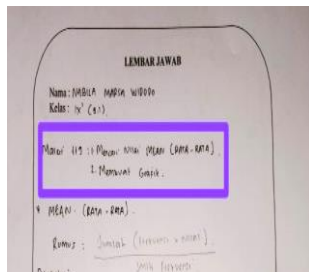 LEMBAR JAWAB
Nama : NABILA MARSA WIDODO
Kelas : IX
1. Mencari Nilai MEAN (RATA-RATA)
2. Membuat Grafik.
* MEAN. (RATA-RATA).
Rumus : Jumlah (frekuensi x nilai)
frekuensi